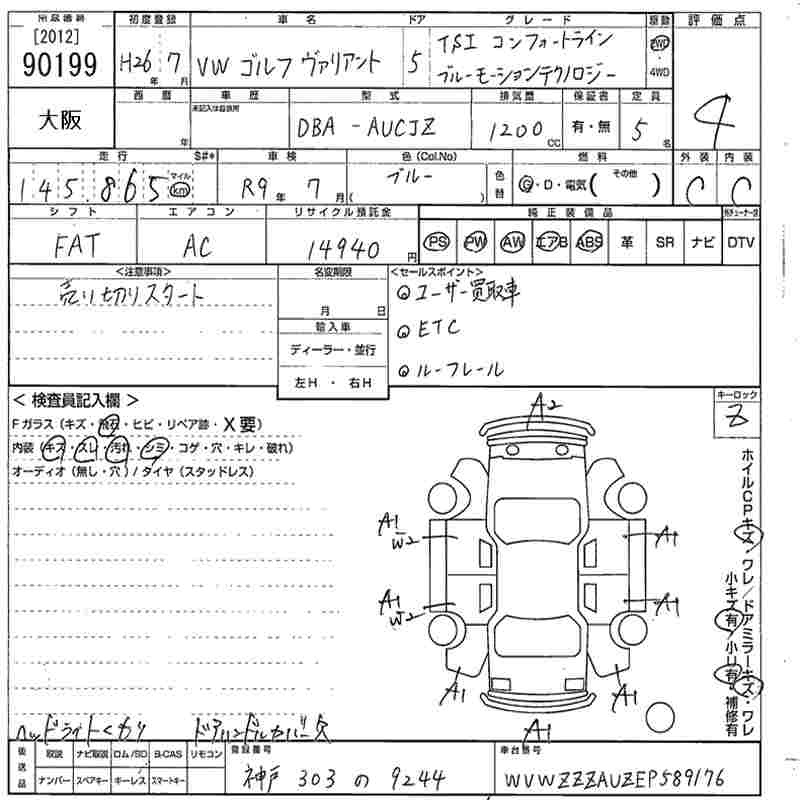 [2012]
90199
初度登録 車名 ドア グレード 駆動 評価点
H26年 7月 VW ゴルフ ヴァリアント 5 TSI コンフォートライン
ブルーモーションテクノロジー
2WD
4WD
4
大阪
西暦 車歴 型式 排気量 保証書 定員
未記入は自家用
年 DBA - AUCJZ 1200 CC 有・無 5名
走行 S#* 車検 色(Col.No) 燃料 外装 内装
145,865 マイル km R9年 7月 ブルー ( ) 色替 G・D・電気( その他 ) C C
シフト エアコン リサイクル預託金 純正装備品
FAT AC 14940円 PS PW AW エアB ABS 革 SR ナビ DTV
<注意事項> 名変期限 <セールスポイント>
売り切りスタート
月 日
◎ユーザー買取車
輸入車
◎ETC
ディーラー・並行
◎ルーフレール
左H ・ 右H
< 検査員記入欄 >
キーロック
Z
Fガラス(キズ・飛石・ヒビ・リペア跡・X要)
内装(キズ・スレ・汚れ・シミ・コゲ・穴・キレ・破れ)
オーディオ(無し・穴)/タイヤ(スタッドレス)
A2
A1
W2
A1
A1
W2
A1
A1
A1
A1
ホイルCPキズ・ワレ/ドアミラーキズ・ワレ
小キズ有/小U有・補修有
ヘッドライトくもり ドアハンドルカバー欠
後送品 取説 ナビ取説 ロム/SD B-CAS リモコン
ナンバー スペアキー キーレス スマートキー
登録番号
神戸 303 の 9244
車台番号
WVWZZZAUZEP589176